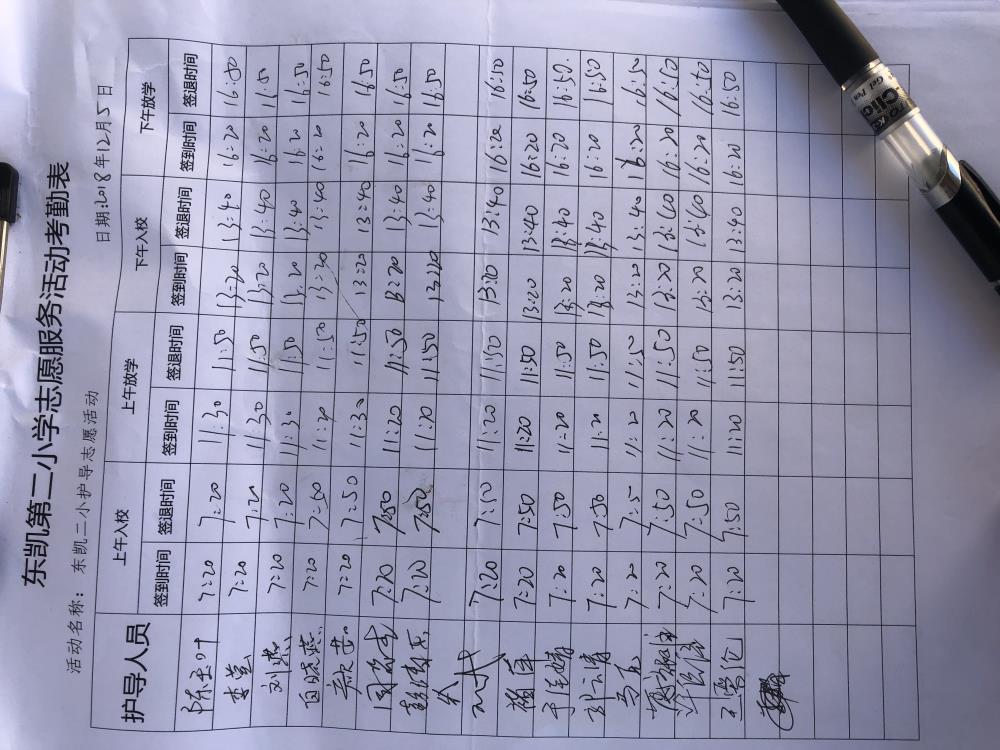 东凯第二小学志愿服务活动考勤表
活动名称：东凯二小护导志愿活动 日期:2018年12月5日
护导人员 上午入校 上午放学 下午入校 下午放学
签到时间 签退时间 签到时间 签退时间 签到时间 签退时间 签到时间 签退时间
陈玉叶 7:20 7:20 11:30 11:50 13:20 13:40 16:20 16:50
李莹 7:20 7:20 11:30 11:50 13:20 13:40 16:20 16:50
刘燕 7:20 7:20 11:30 11:50 13:20 13:40 16:20 16:50
白晓燕 7:20 7:50 11:20 11:50 13:20 13:40 16:20 16:50
7:20 7:50 11:30 11:50 13:20 13:40 16:20 16:50
7:20 7:50 11:20 11:50 13:20 13:40 16:20 16:50
7:20 7:50 11:20 11:50 13:20 13:40 16:20 16:50
7:20 7:50 11:20 11:50 13:20 13:40 16:20 16:50
7:20 7:50 11:20 11:50 13:20 13:40 16:20 16:50
7:20 7:50 11:20 11:50 13:20 13:40 16:20 16:50
7:20 7:50 11:20 11:50 13:20 13:40 16:20 16:50
7:20 7:5 11:20 11:50 13:20 13:40 16:20 16:50
7:20 7:50 11:20 11:50 13:20 13:40 16:20 16:50
7:20 7:50 11:20 11:50 13:20 13:40 16:20 16:50
7:20 7:50 11:20 11:50 13:20 13:40 16:20 16:50
Clic
Gel Pen